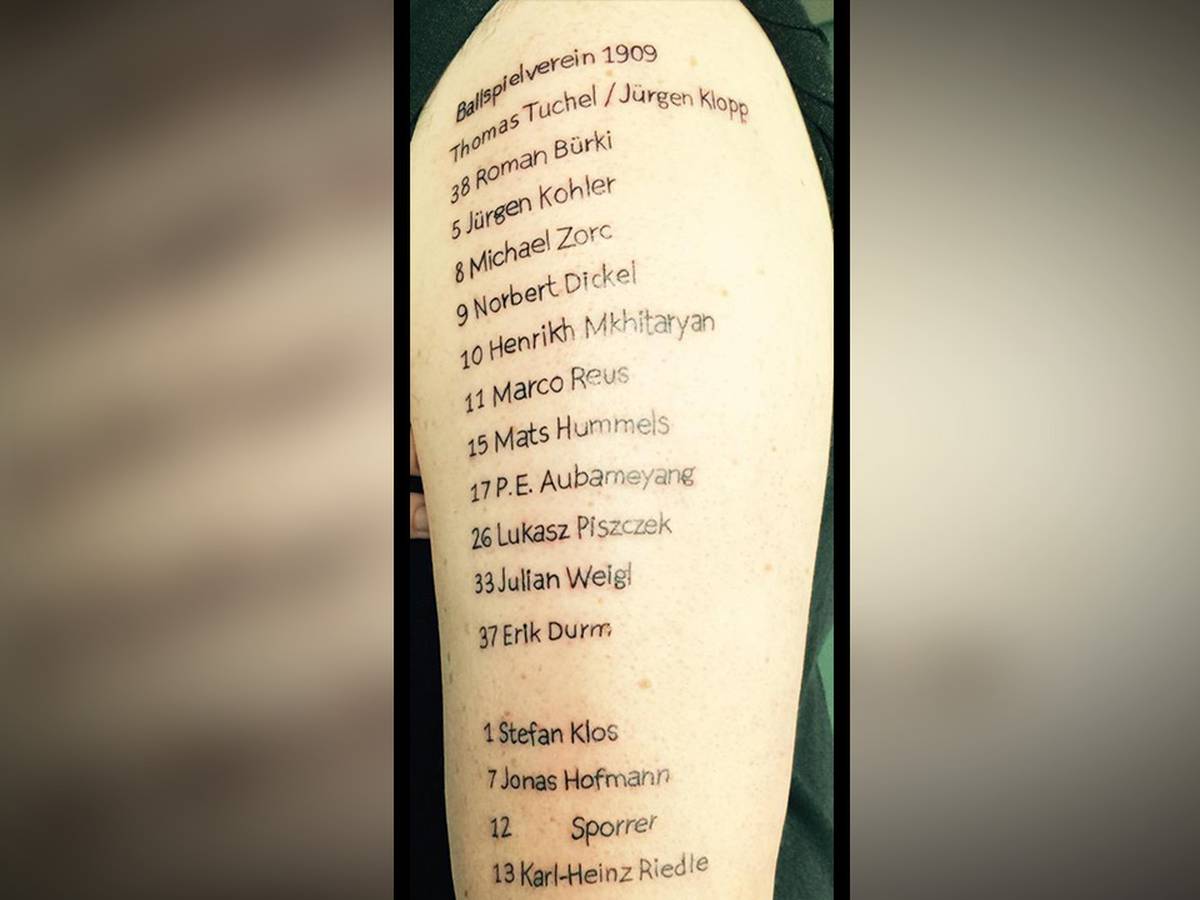 Ballspielverein 1909
Thomas Tuchel / Jürgen Klopp
38 Roman Bürki
5 Jürgen Kohler
8 Michael Zorc
9 Norbert Dickel
10 Henrikh Mkhitaryan
11 Marco Reus
15 Mats Hummels
17 P.E. Aubameyang
26 Lukasz Piszczek
33 Julian Weigl
37 Erik Durm
1 Stefan Klos
7 Jonas Hofmann
12 Sporrer
13 Karl-Heinz Riedle